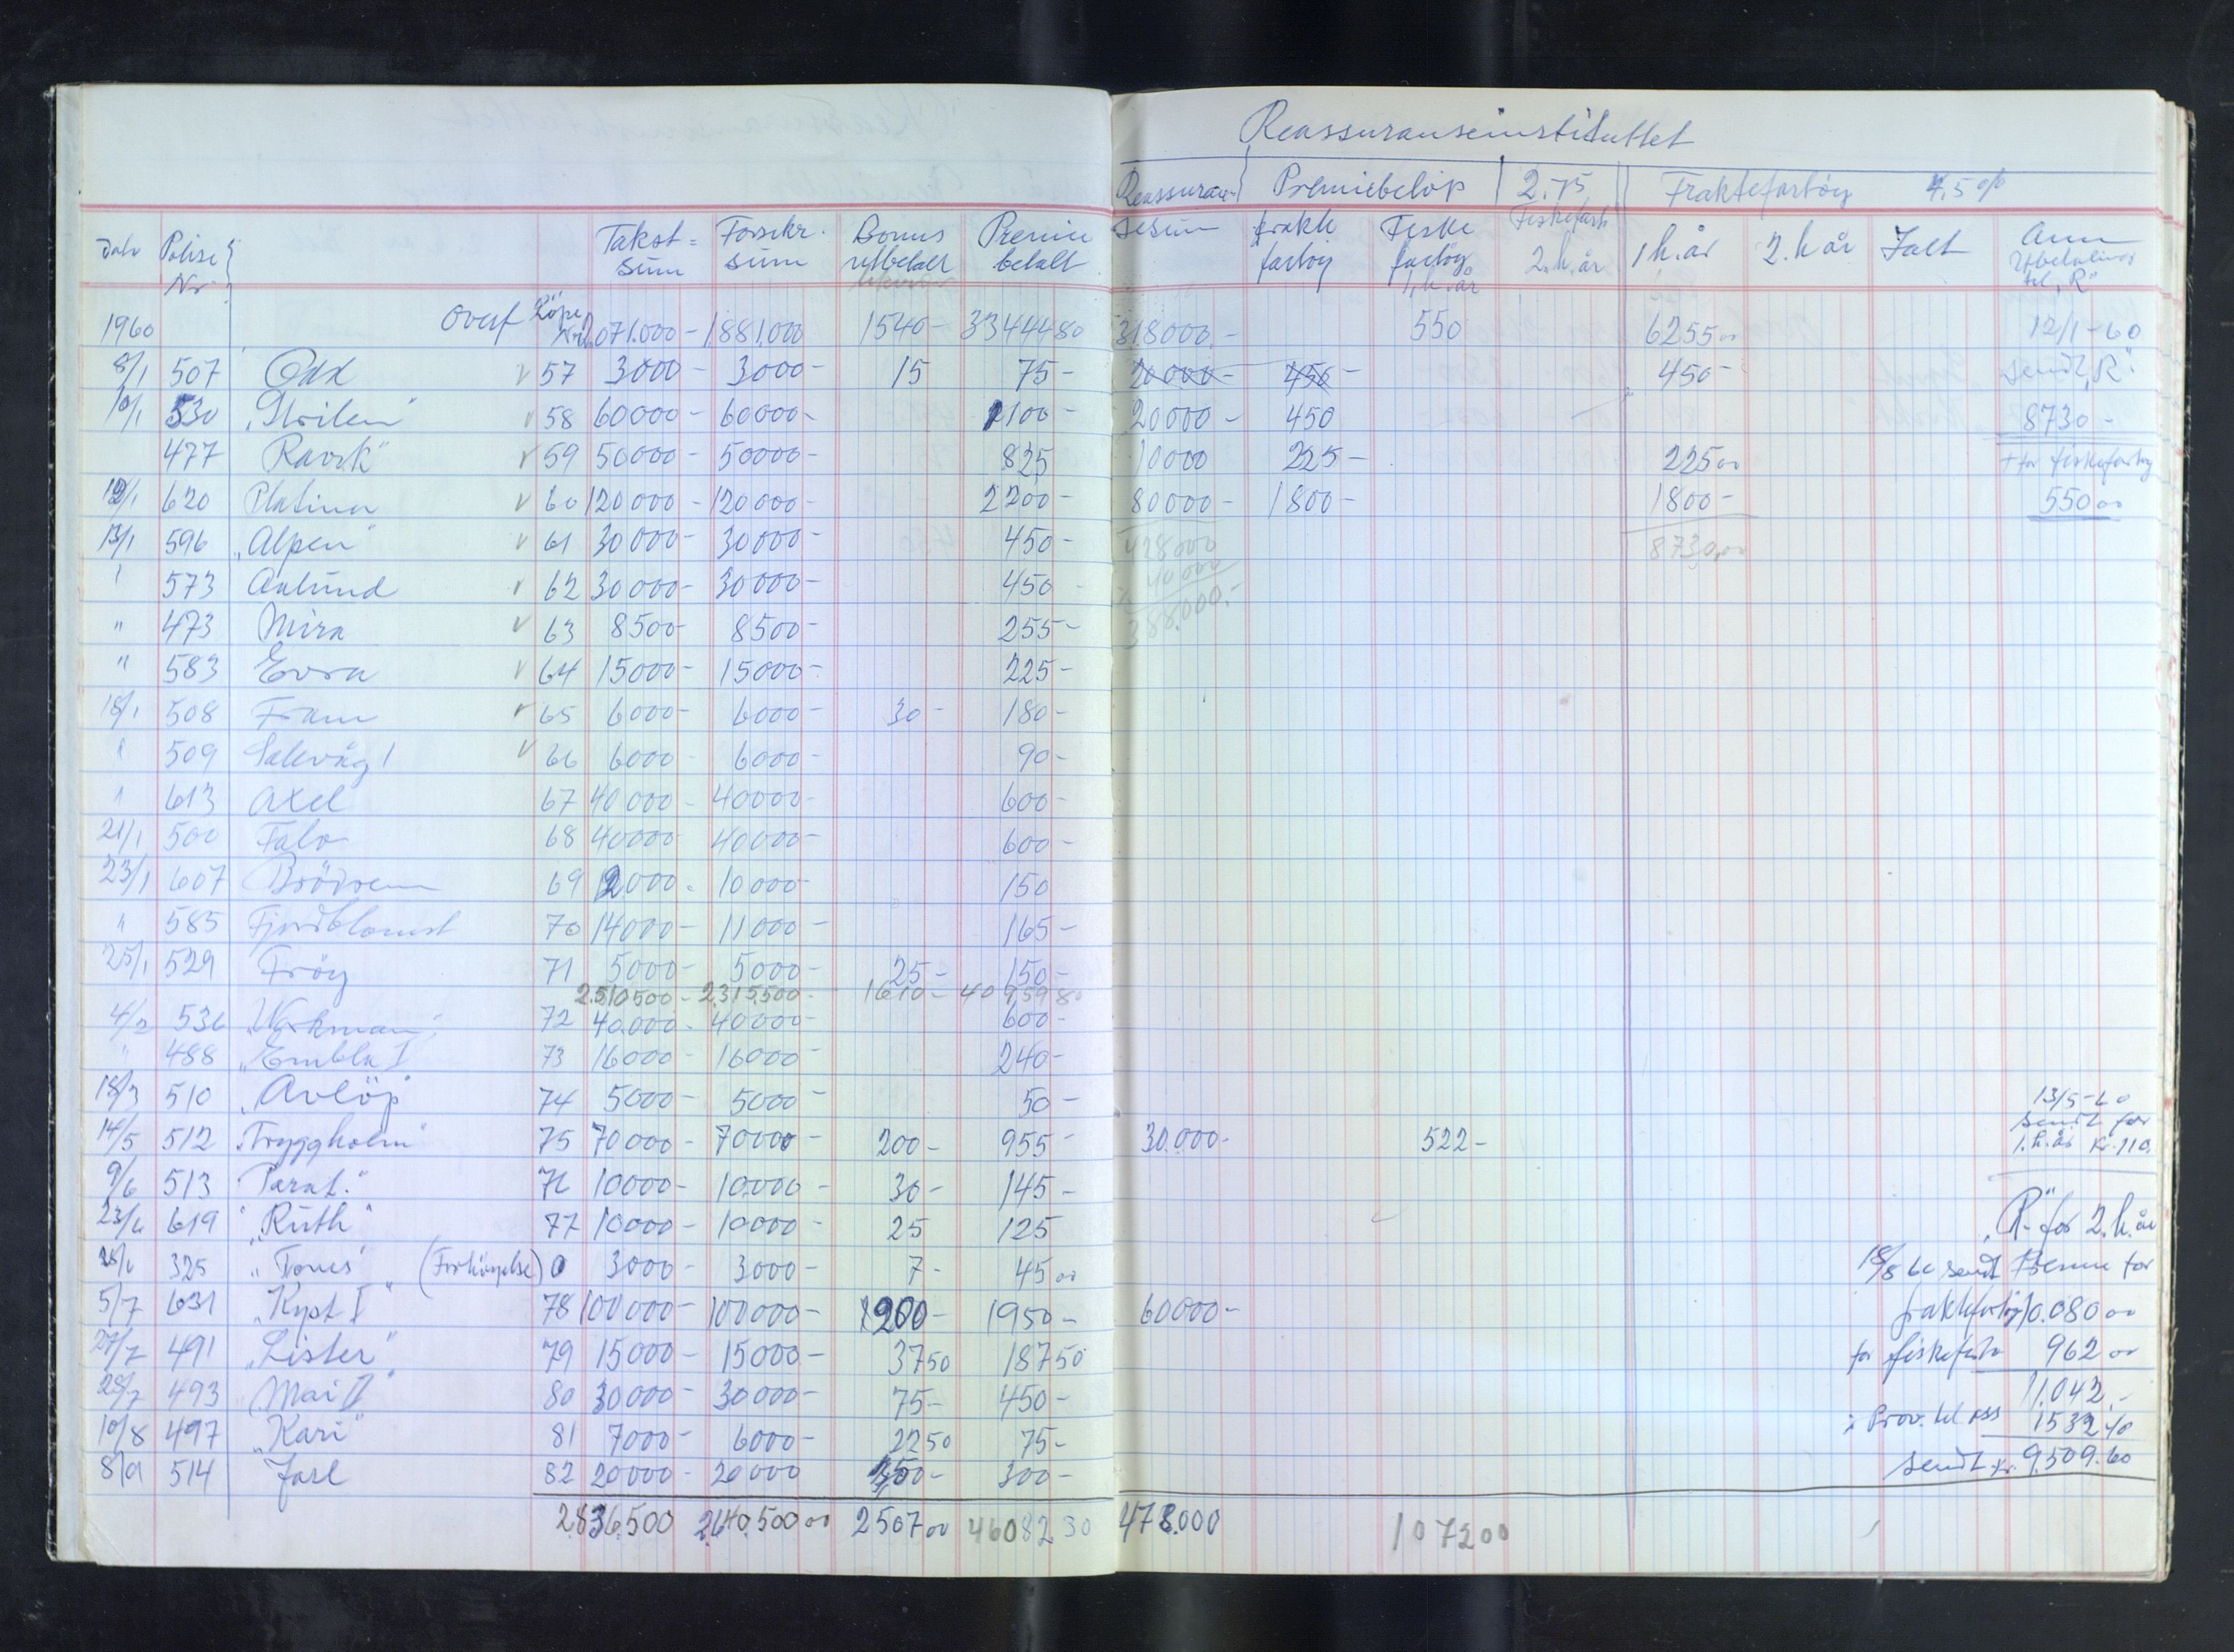 Reassuranseinstituttet
Reassuran- Premiebeløp 2.75 Fraktefartøy 4,5 %
Dato Polise Nr Takst= sum Forsikr. sum Bonus utbetalt Premie betalt sesum frakte fartøy Fiske fartøy 1. h. år Fiskefart. 2. h. år 1 h. år 2. h år Ialt Anm Utbetalinger til "R"
1960 Overf Löpe Nr 2,071.000- 1881,000 1540- 33444 80 318000.- 550 6255 00 12/1-60
8/1 507 Odd v 57 3000- 3000- 15 75- 20000- 450- 450- sendt "R"
10/1 530 "Strilen" v 58 60000- 60000- 1100- 20000- 450 8730-
477 Ravsk" v 59 50000- 50000- 825 10000 225- 225 00 + for fiskefartøy
12/1 620 Platina v 60 120000- 120000- 2200- 80000- 1800- 1800- 550 00
13/1 596 "Alpen" v 61 30000- 30000- 450- 428000 8730,00
" 573 Aalund v 62 30000- 30000- 450- 40000
" 473 Mira v 63 8500- 8500- 255- 388.000.-
" 583 Evra v 64 15000- 15000- 225-
18/1 508 Fram v 65 6000- 6000- 30- 180-
" 509 Salevåg 1 v 66 6000- 6000- 90-
" 613 Axel 67 40000- 40000- 600-
21/1 500 Falo 68 40000 40000- 600-
23/1 607 Brödrene 69 12000- 10000- 150
" 585 Fjordblomst 70 14000- 11000- 165-
25/1 529 Fröy 71 5000- 5000- 25- 150-
2.510500- 2.315.500- 1610- 40 959 80
4/2 536 "Workman" 72 40.000- 40000- 600-
" 488 "Embla I 73 16000- 16000- 240-
18/3 510 "Avlöp" 74 5000- 5000- 50- 13/5-60
14/5 512 "Tryggholm" 75 70000- 70000- 200- 955- 30.000- 522- sendt for 1. h. år Kr. 110.
9/6 513 "Parat." 76 10000- 10.000- 30- 145-
23/6 619 "Ruth" 77 10000- 10000- 25 125 "R" for 2. h. år
28/6 325 "Tones" (Forhöyelse) 0 3000- 3000- 7- 45 00 18/8 60 sendt Premie for
5/7 631 "Kypt I" 78 100000- 100000- 200- 1950- 60000- fraktefartøy 10.080 00
27/7 491 "Lister" 79 15000- 15000- 37 50 187 50 for fiskefartø 962 00
28/7 493 "Mai II" 80 30000- 30000- 75- 450- 11.042.-
10/8 497 "Kari" 81 7000- 6000- 22 50 75- ÷ Prov. til oss 1532 40
8/9 514 Jarl 82 20000- 20000 300- sendt kr. 9.509.60
2.836.500 2.640.500 00 2507 00 46082 30 478.000 1072 00